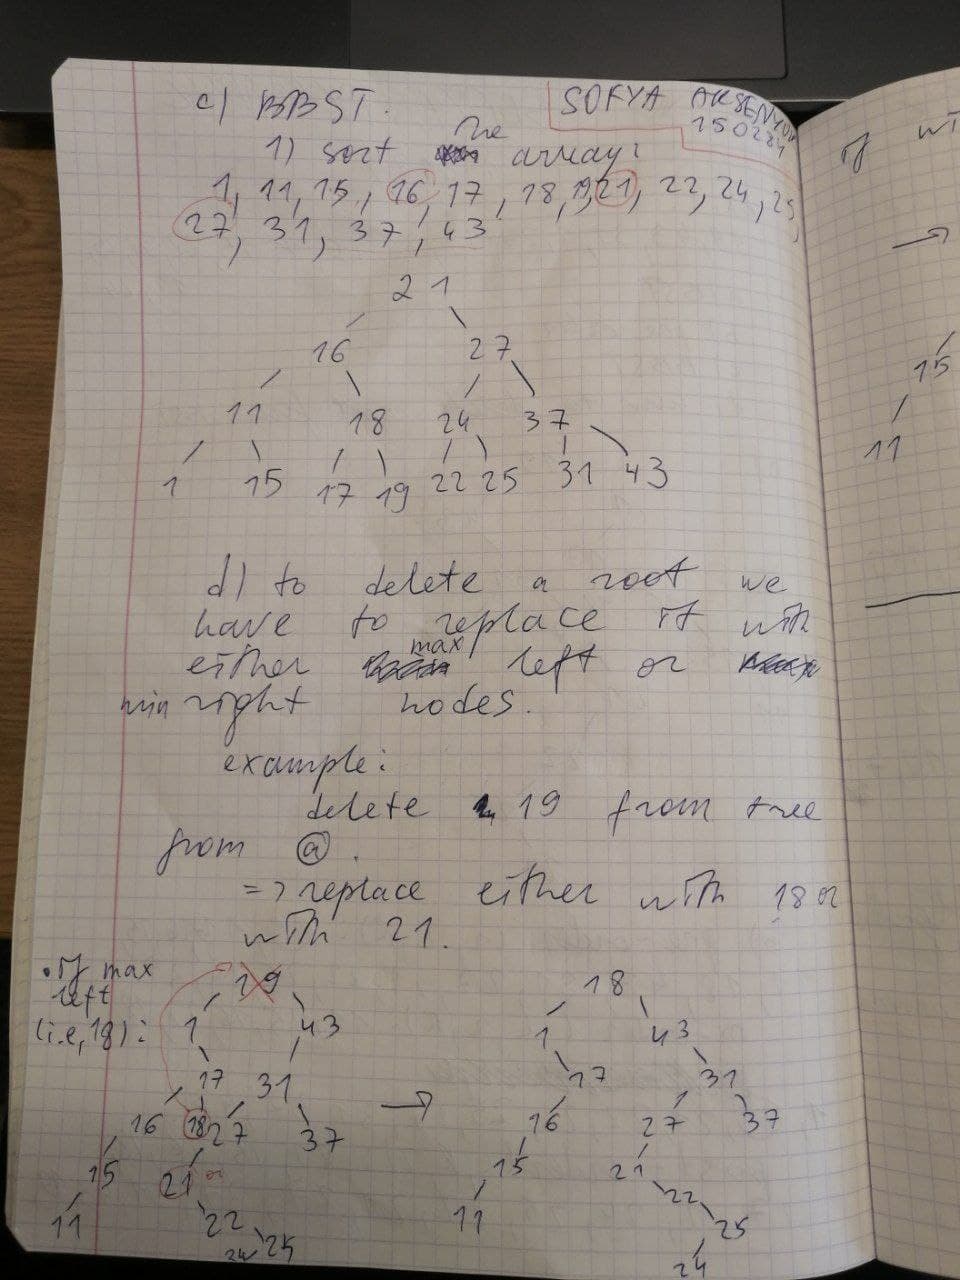 c) BBST.
SOFYA ARSENYUK
150284
1) sort the array:
1, 11, 15, 16, 17, 18, 19, 21, 22, 24, 25,
27, 31, 37, 43
21
16 27
11 18 24 37
1 15 17 19 22 25 31 43
d) to delete a root we
have to replace it with
either max left or
min right nodes.
example:
delete 19 from tree
from a.
=> replace either with 18 or
with 21.
• if max
left
(i.e, 18):
19
1 43
17 31
16 18 27 37
15 21 or
11 22
24 25
→
18
1 43
17 31
16 27 37
15 21
11 22
25
24
if wi
→
15
11